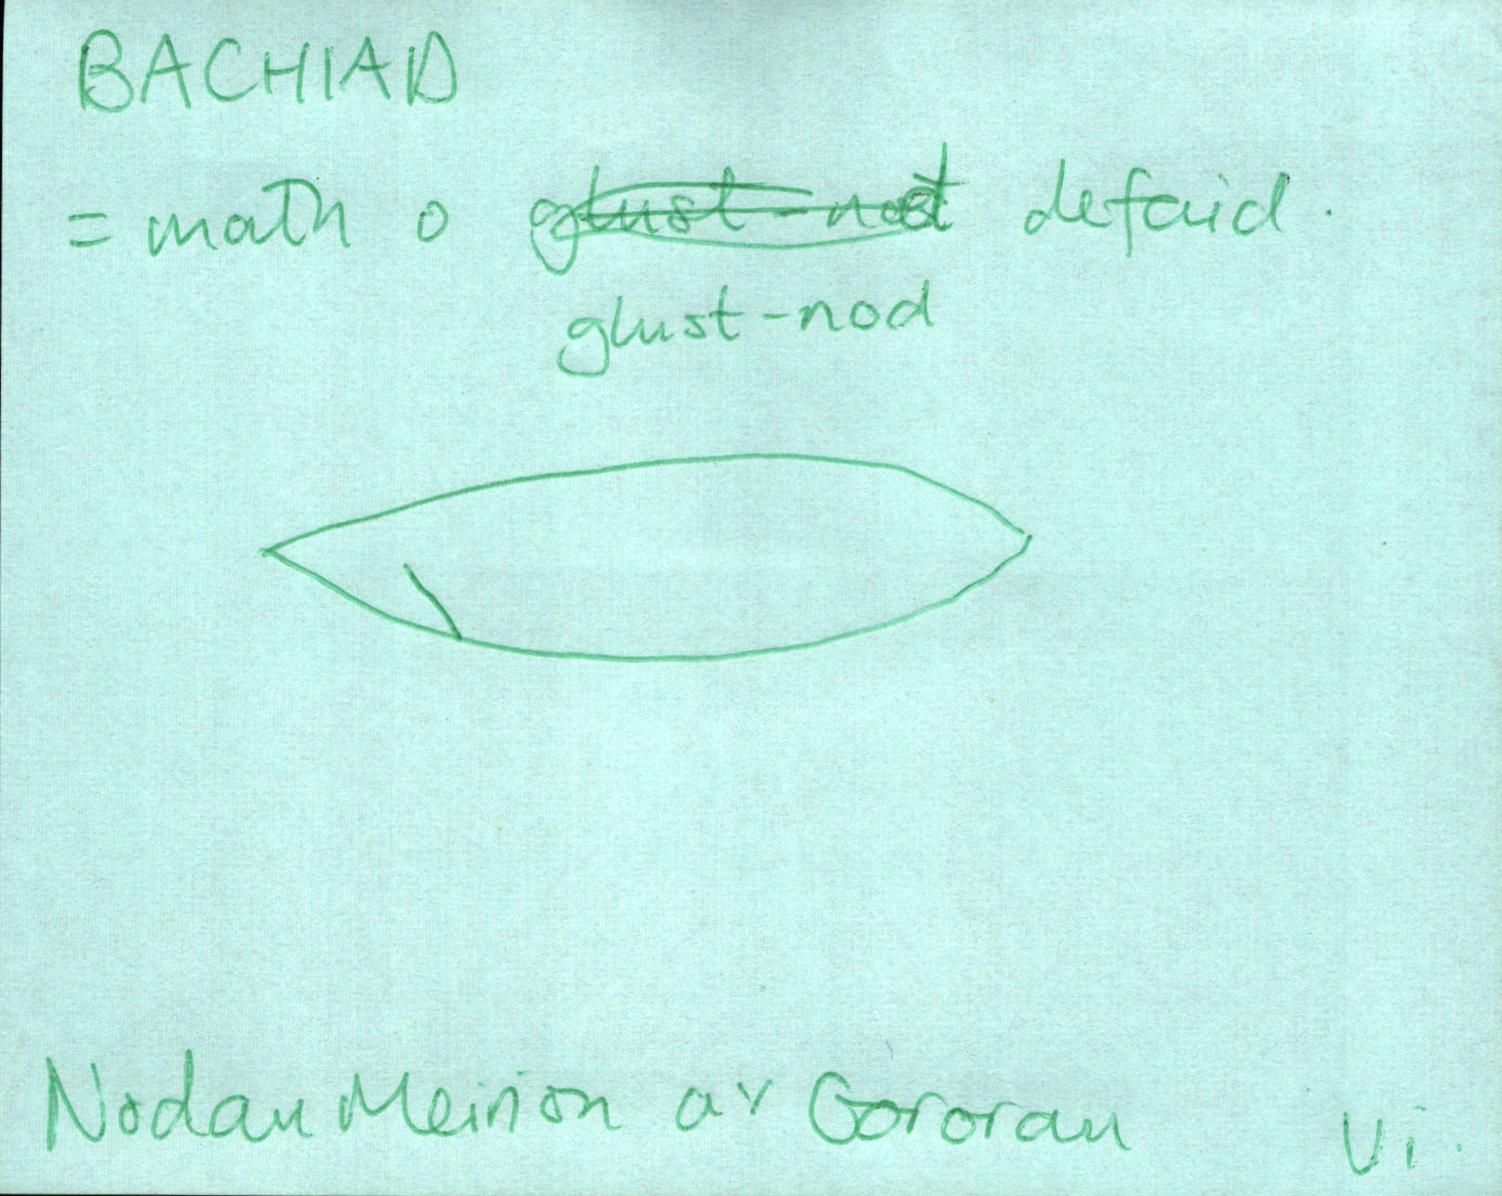 BACHIAD
= math o glust-nod defaid.
glust-nod
Nodau Meirion a'r Gororau vi.